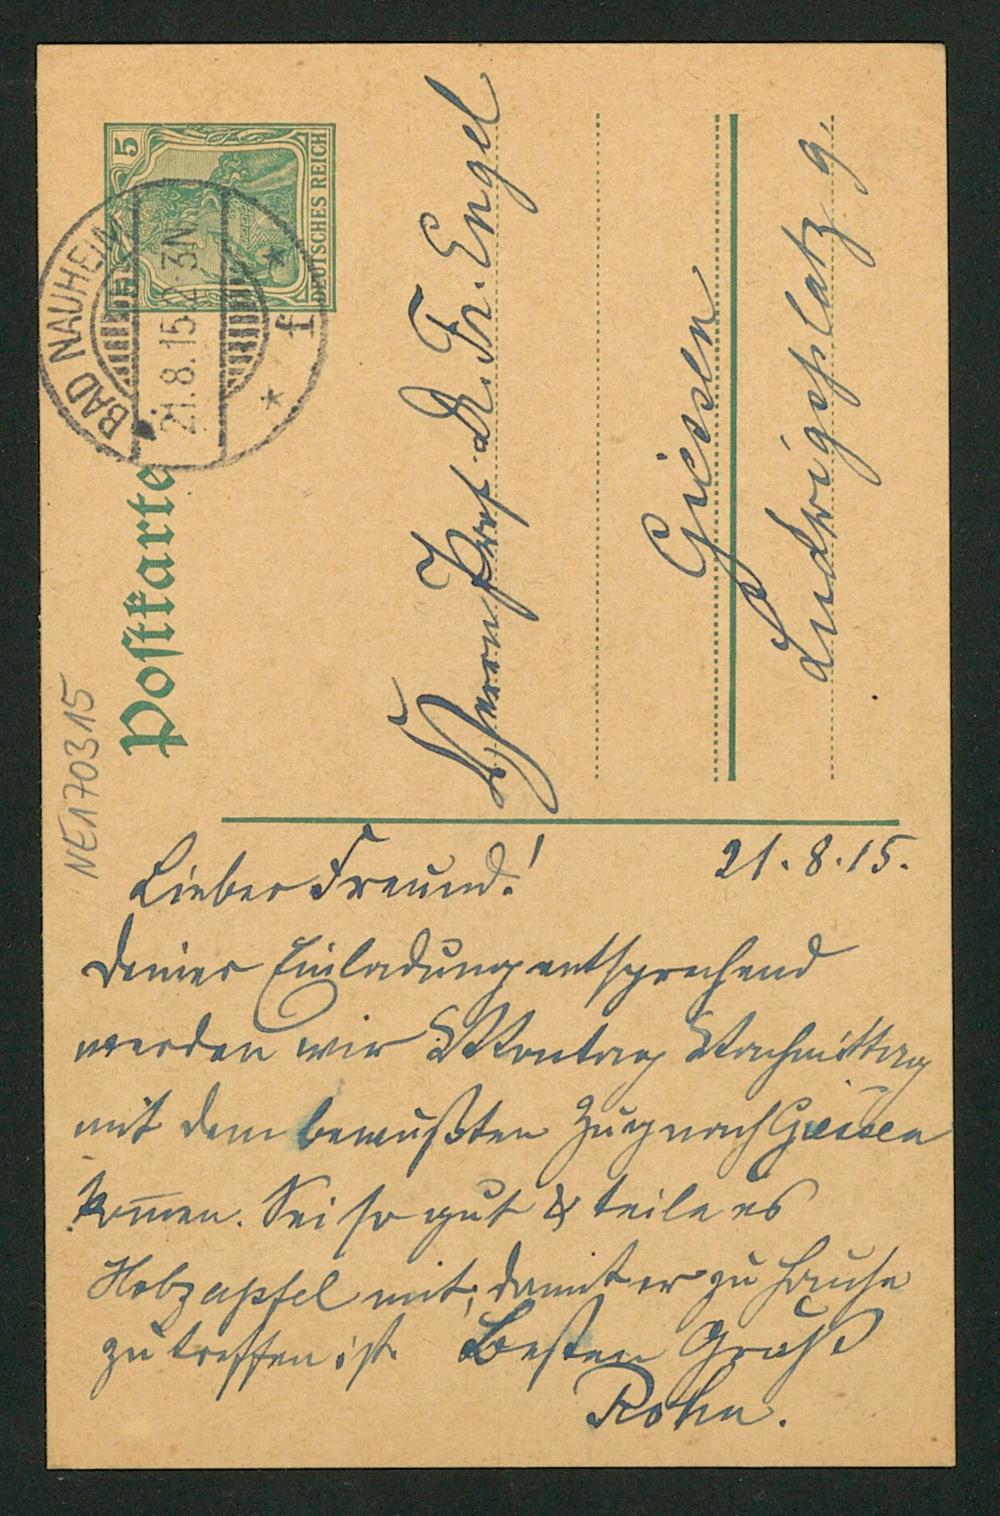 NE170315
Postkarte
5
5
DEUTSCHES REICH
BAD NAUHEIM
21.8.15.2-3N
* f *
Herrn Prof. Dr. Fr. Engel
Giessen
Ludwigsplatz 9.
21.8.15.
Lieber Freund!
Deiner Einladung entsprechend
werden wir Montag Nachmittag
mit dem bewußten Zug nach Giessen
kom̅en. Sei so gut & teile es
Holzapfel mit, damit er zu Hause
zu treffen ist. Besten Gruß
Rohn.